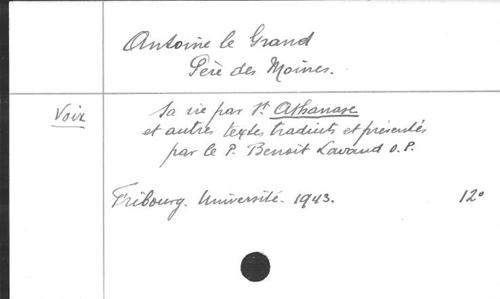 Antoine le Grand
Père des Moines.
Voir
Sa vie par St. Athanase
et autres textes traduits et présentés
par le P. Benoit Lavaud O.P.
Fribourg. Université. 1943. 12°